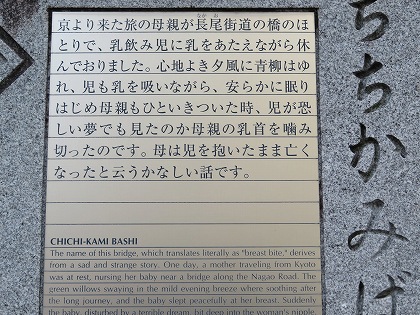 京より来た旅の母親が長尾街道の橋のほ
とりで、乳飲み児に乳をあたえながら休
んでおりました。心地よき夕風に青柳はゆ
れ、児も乳を吸いながら、安らかに眠り
はじめ母親もひといきついた時、児が恐
しい夢でも見たのか母親の乳首を噛み
切ったのです。母は児を抱いたまま亡く
なったと云うかなしい話です。
CHICHI-KAMI BASHI
The name of this bridge, which translates literally as "breast bite," derives
from a sad and strange story. One day, a mother traveling from Kyoto
was at rest, nursing her baby near a bridge along the Nagao Road. The
green willows swaying in the mild evening breeze where soothing after
the long journey, and the baby slept peacefully at her breast. Suddenly
the baby, disturbed by a terrible dream, bit deep into the woman's nipple
ちちかみば